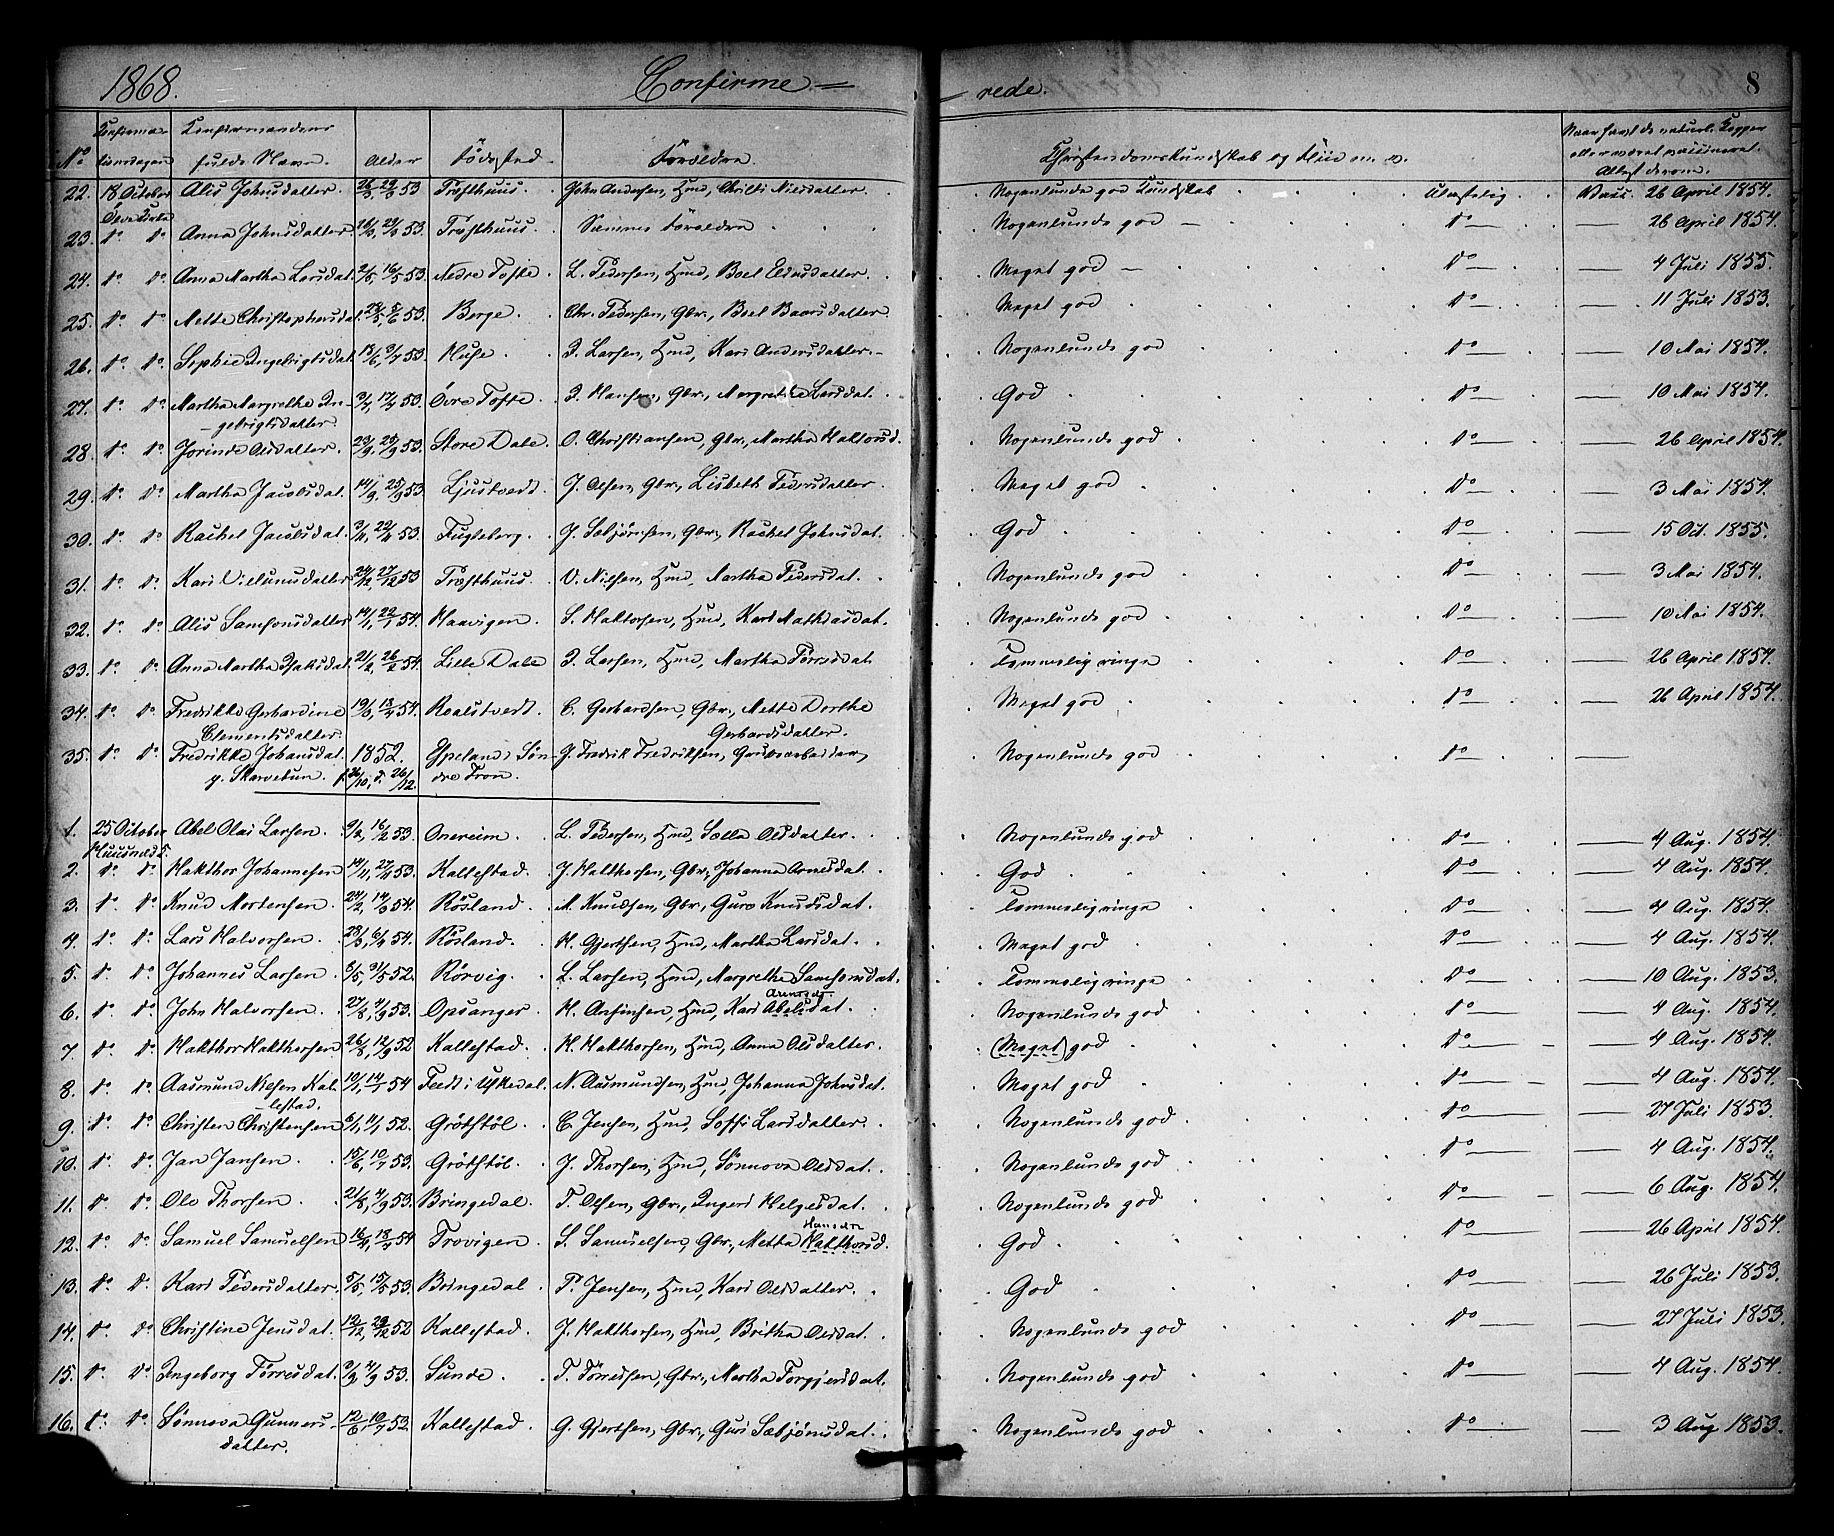 1868. Confirme = = rede. 8
No Confirmationsdagen Confirmandens fulde Navn. Alder Födested Forældre Christendomskundskab og Flid m. v. Naar havt de naturl. Kopper eller været vaccineret. Attest derom.
22. 18 October Alis Johnsdatter. 53 Trosthuus. John Andersen, Hmd, Nilsdatter. Nogenlunde god Kundskab Ulastelig Vacc. 26 April 1854.
Övre Dale
23. do do Anna Johnsdatter 53. Trosthuus. Samme Forældre Nogenlunde god — do — 26 April 1854.
24. do do Anna Martha Larsdat. 2/5, 16/5 53. Nedre Tofte. L. Pedersen, Hmd, Boel Elisdatter. Meget god — do — 4 Juli 1855.
25. do do Mette Christophersdat. 5/6 53. Berge. Chr. Pedersen, Gbr., Boel Baarsdatter. Meget god do — 11 Juli 1853.
26. do do Sophie Ingebrigtsdat. 3/7 53. Huse. I. Larsen, Hmd, Kari Andersdatter. Nogenlunde god do — 10 Mai 1854.
27. do do Martha Margrethe In- 17/4 53. Övre Tofte. I. Hansen, Gbr., Margrethe Larsdat. God do — 10 Mai 1854.
gebrigtsdatter
28. do do Jorinde Olsdatter 23/9, 53. Store Dale. O. Christiansen, Gbr., Martha Haktorsd. Nogenlunde god do — 26 April 1854.
29. do do Martha Jacobsdat. 14/9, 25/9 53. Ljustvedt. J. Olsen, Gbr., Lisbeth Pedersdatter. Meget god do — 3 Mai 1854.
30. do do Rachel Jacobsdat. 53. Fugleberg. J. Sebjörnsen, Gbr., Rachel Johnsdat. God do — 15 Oct. 1855.
31. do do Kari Villumsdatter 24/12, 27/12 53 Trosthuus. V. Nilsen, Hmd, Martha Pedersdat. Nogenlunde god do — 3 Mai 1854.
32. do do Alis Samsonsdatter 14/1, 22/1 54. Haavigen. S. Haktorsen, Hmd, Kari Mathiasdat. Nogenlunde god do — 10 Mai 1854.
33. do do Anna Martha 21/2, 26/2 54. Lille Dale I. Larsen, Hmd, Martha Törresdat. Temmelig ringe do — 26 April 1854.
34. do do Fredrikke Gerhardine 19/3, 13/4 54. Roalstvedt. C. Gerhardsen, Gbr., Mette Dorthe Meget god do — 26 April 1854.
Clementsdatter. Gerhardsdatter.
35. do do Fredrikke Johansdat. 1852. Ypeland, Sön- J. Fredrik Fredriksen, Grubearbeider, Nogenlunde god do —
p. Skarvetun. f. 26/10, d. 26/12. dre Fron.
1. 25 October Abel Olai Larsen. 9/2, 16/2 53. Onereim. L. Pedersen, Hmd, Sella Olsdatter. Nogenlunde god do — 4 Aug. 1854.
Huusnæs K.
2. do do Hakthor Johannesen 14/11, 27/11 53. Kallestad. J. Hakthorsen, Gbr., Johanna Arnesdat. God do — 4 Aug. 1854.
3. do do Knud Mortensen. 24/2, 14/3 54. Rösland. M. Knudsen, Gbr., Guro Knudsdat. Temmelig ringe do — 4 Aug. 1854.
4. do do Lars Halvorsen. 28/3, 6/4 54. Rösland. H. Gjertsen, Hmd, Martha Larsdat. Meget god do — 4 Aug. 1854.
5. do do Johannes Larsen 31/5 52. Rörvig. L. Larsen, Hmd, Margrethe Samsonsdat. Temmelig ringe do — 10 Aug. 1853.
6. do do John Halvorsen. 27/8, 4/9 53. Opsanger. H. Anfinsen, Hmd, Kari Abelsdat. Nogenlunde god do — 4 Aug. 1854.
7. do do Hakthor Hakthorsen 26/8, 12/9 52 Kallestad. H. Hakthorsen, Hmd, Anna Olsdatter. (Meget) god do — 4 Aug. 1854.
8. do do Aasmund Nilsen Kal- 10/1, 14/1 54 Tvedt i Uskedal. N. Aasmundsen, Hmd, Johanna Johnsdat. Meget god do — 4 Aug. 1854.
lestad.
9. do do Christen Christensen 6/1, 11/1 52. Gröthtöl. C. Jensen, Hmd, Soffi Larsdatter. Nogenlunde god do — 27 Juli 1853.
10. do do Jan Jansen. 15/6, 10/7 53. Gröthtöl. J. Thorsen, Hmd, Sönnova Olsdat. Nogenlunde god do — 4 Aug. 1854.
11. do do Ole Thorsen. 21/8, 4/9 53. Bringedal. T. Olsen, Gbr., Ingeri Helgesdat. Nogenlunde god do — 6 Aug. 1854.
12. do do Samuel Samuelsen 16/4, 18/4 54 Trovigen. S. Samuelsen, Gbr., Metta Hakthorsd. God do — 26 April 1854.
13. do do Kari Pedersdatter. 5/5, 15/5 53. Bringedal. P. Jensen, Hmd, Kari Olsdatter. God do — 26 Juli 1853.
14. do do Christine Jensdat. 12/12, 52 Kallestad. J. Hakthorsen, Hmd, Britha Olsdat. Nogenlunde god do — 27 Juli 1853.
15. do do Ingeborg Törresdat. 4/9 53. Sunde. T. Törresen, Gbr., Martha Torgjersdat. Nogenlunde god do — 4 Aug. 1854.
16. do do Sönnova Gunners- 12/6, 10/7 53. Kallestad. G. Gjertsen, Gbr., Guri Sebjörnsdat. Nogenlunde god do — 3 Aug 1853.
datter.